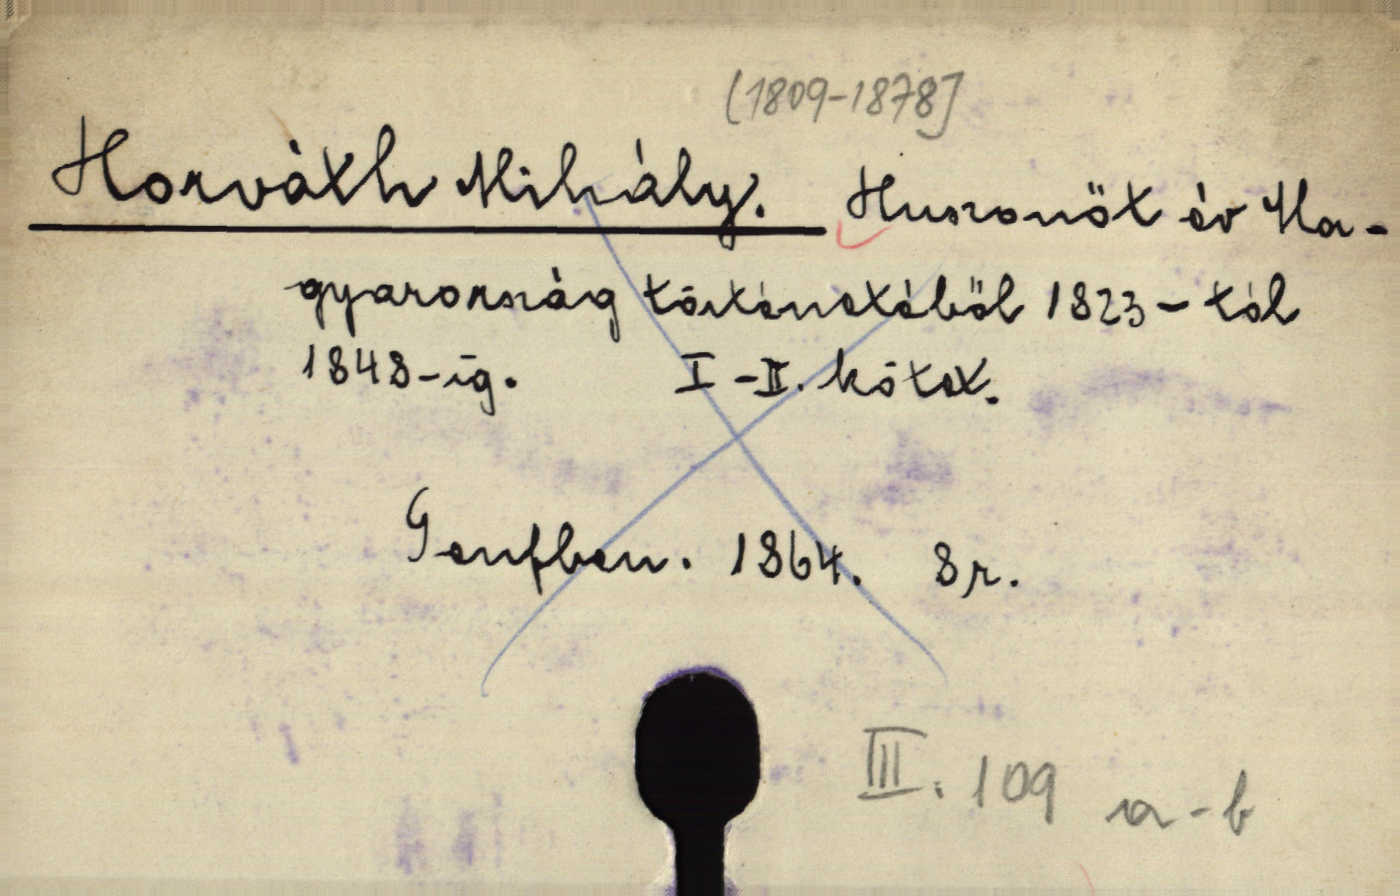 (1809-1878]
Horváth Mihály. Huszonöt év Ma-
gyarország történetéből 1823-tól
1848-ig. I-II. kötet.
Genfben. 1864. 8r.
III. 109 a-b